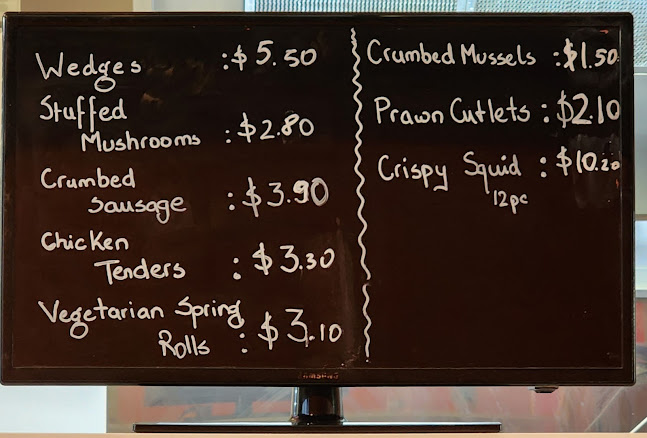 Wedges :$5.50
Stuffed
Mushrooms :$2.80
Crumbed
Sausage :$3.90
Chicken
Tenders :$3.30
Vegetarian Spring
Rolls :$3.10
Crumbed Mussels :$1.50
Prawn Cutlets :$2.10
Crispy Squid :$10.20
12pc
SAMSUNG